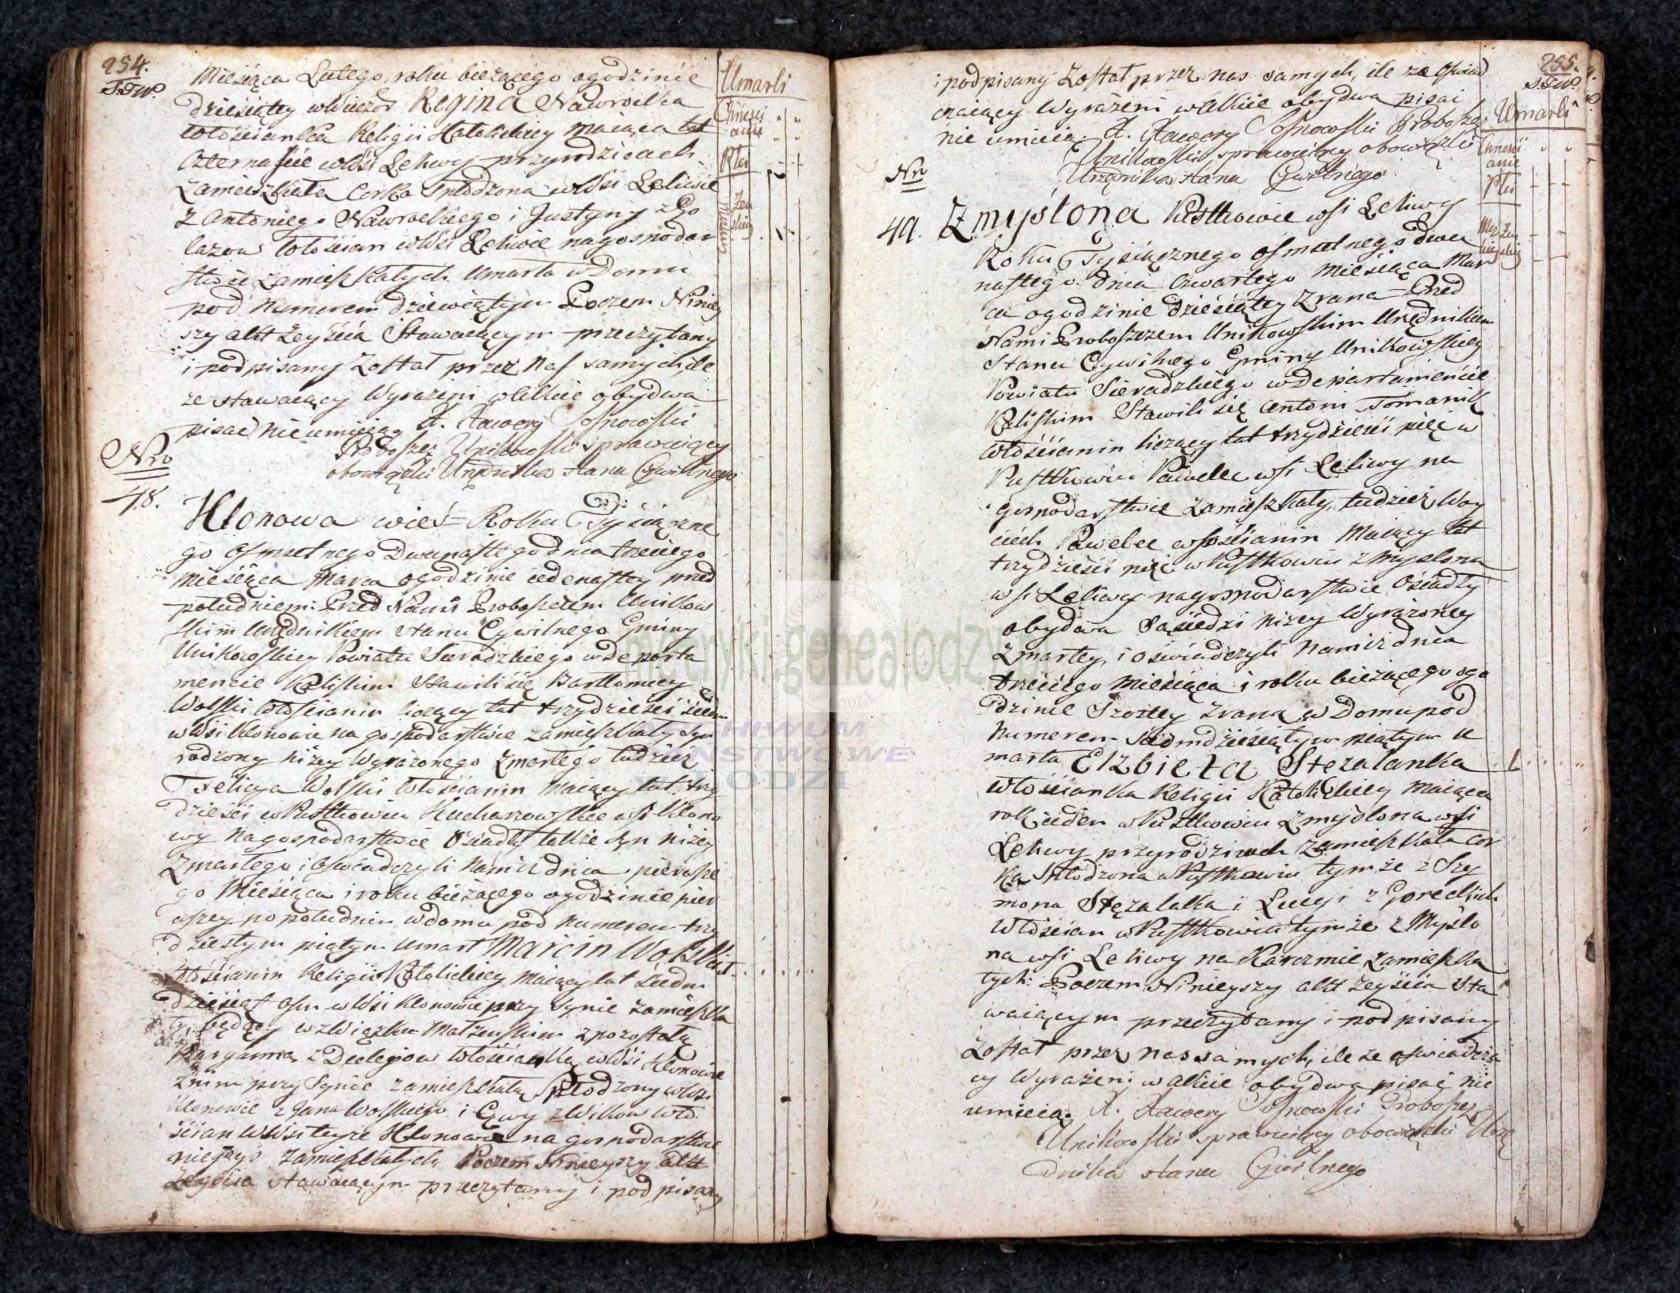 254.
Miesiąca Lutego, roku bieżącego ogodzinie
dziesiątey wWieczor Regina Nawrocka
Włościanka Religii Katolickiey maiąca lat
czternaście wWsi Lekwy przyrodzicach
zamieszkała Corka spłodzona wWsi Lekwie
z Antoniego Nawrockiego i Justyny z
Włościan wWsi Lekwie nagospodar
stwie zamieszkałych umarła wDomu
pod Numerem dziewiątym Poczem Niniey
szy akt Zeyścia Stawaiącym przeczytany
i podpisany został przez Nas samych, ile
ze stawaiący wyrażeni wAkcie obydwa
pisać nieumieią X. Xawery Sosnowski
Proboszcz Unikowski sprawuiący
obowiązki Urzędnika stanu Cywilnego
Umarli
Chrześci
anie
Płci
Nro
48.
Klonowa wieś Roku Tysiączne
go osmsetnego Dwunastego dnia trzeciego
Miesiąca Marca ogodzinie iedenastey przed
południem. Przed Nami Proboszczem Unikow
skim Urzędnikiem stanu Cywilnego Gminy
Unikowskiey Powiatu Sieradzkiego wdeparta
mencie Kaliskim Stawili się Bartłomiey
Wolski Włościanin liczący lat trzydzieści siedm
wWsi Klonowie na gospodarstwie zamieszkały Syn
rodzony niżey wyrażonego zmarłego tudzież
Felicyan Wolski Włościanin maiący lat trzy
dzieści wPustkowiu Kucharowskie wsi Klono
wy na gospodarstwie Osiadły także syn niżey
zmarłego i oświadczyli Nam iż dnia pierwsze
go Miesiąca i roku bieżącego ogodzinie pier
wszey po południu wdomu pod Numerem trzy
dziestym piątym umarł Marcin Wolski
Włościanin Religii Katolickiey maiący lat siedm
dziesiąt osm wWsi Klonowie przy Synie zamieszka
ły będący wzwiązku Małżeńskim z pozostałą
Maryanną z Włościanką wWsi Klonowie
znim przy Synie zamieszkałą Spłodzony wWsi
Klonowie z Jana Wolskiego i Ewy z Wilków Wło
ścian wWsi teyże Klonowie na gospodarstwie
niegdyś zamieszkałych Poczem Ninieyszy akt
Zeyścia stawaiącym przeczytany i podpisany
255.
i podpisany został przez nas samych, ile ze oświad
czaiący wyrażeni wakcie obydwa pisać
nie umieią. X. Xawery Sosnowski Proboszcz
Unikowski sprawuiący obowiązki
Urzędnika stanu Cywilnego
Umarli
Chrześci
anie
Płci
Nro
49.
Zmyślona Pustkowie wsi Lekwy
Roku Tysiącznego osmsetnego dwu
nastego dnia czwartego Miesiąca Mar
ca ogodzinie dziesiątey zrana Przed
Nami Proboszczem Unikowskim Urzędnikiem
Stanu Cywilnego Gminy Unikowskiey
Powiatu Sieradzkiego wdepartamencie
Kaliskim Stawili się Antoni Tomanik
Włościanin liczący lat trzydzieści pięć w
Pustkowiu Pawelec wsi Lekwy na
gospodarstwie zamieszkały, tudzież Woy
ciech Pawelec włościanin Maiący lat
trzydzieści pięć wPustkowiu Zmyślona
wsi Lekwy nagospodarstwie Osiadły
obydwa Sąsiedzi niżey wyrażoney
zmarłey, i oświadczyli Nam iż dnia
trzeciego Miesiąca i roku bieżącego ogo
dzinie szostey zrana w Domu pod
Numerem siedmdziesiątym piątym u
marła Elzbieta Stęzalanka
Włościanka Religii Katolickiey maiąca
rok ieden wPustkowiu Zmyślona wsi
Lekwy przyrodzicach zamieszkała Cor
ka Spłodzona wPustkowiu tymże z Szy
mona Stęzalaka i Łucyi z Goreckich
Włościan wPustkowiu tymże Zmyślo
na wsi Lekwy na Karczmie zamieszka
łych. Poczem Ninieyszy akt zeyścia Sta
waiącym przeczytany i podpisany
został przez nas samych, ile ze oświadcza
iący wyrażeni wakcie obydwa pisać nie
umieią. X. Xawery Sosnowski Proboszcz
Unikowski sprawuiący obowiązki Urzę
dnika stanu Cywilnego
metryki.genealodzy
ARCHIWUM
PAŃSTWOWE
W ŁODZI